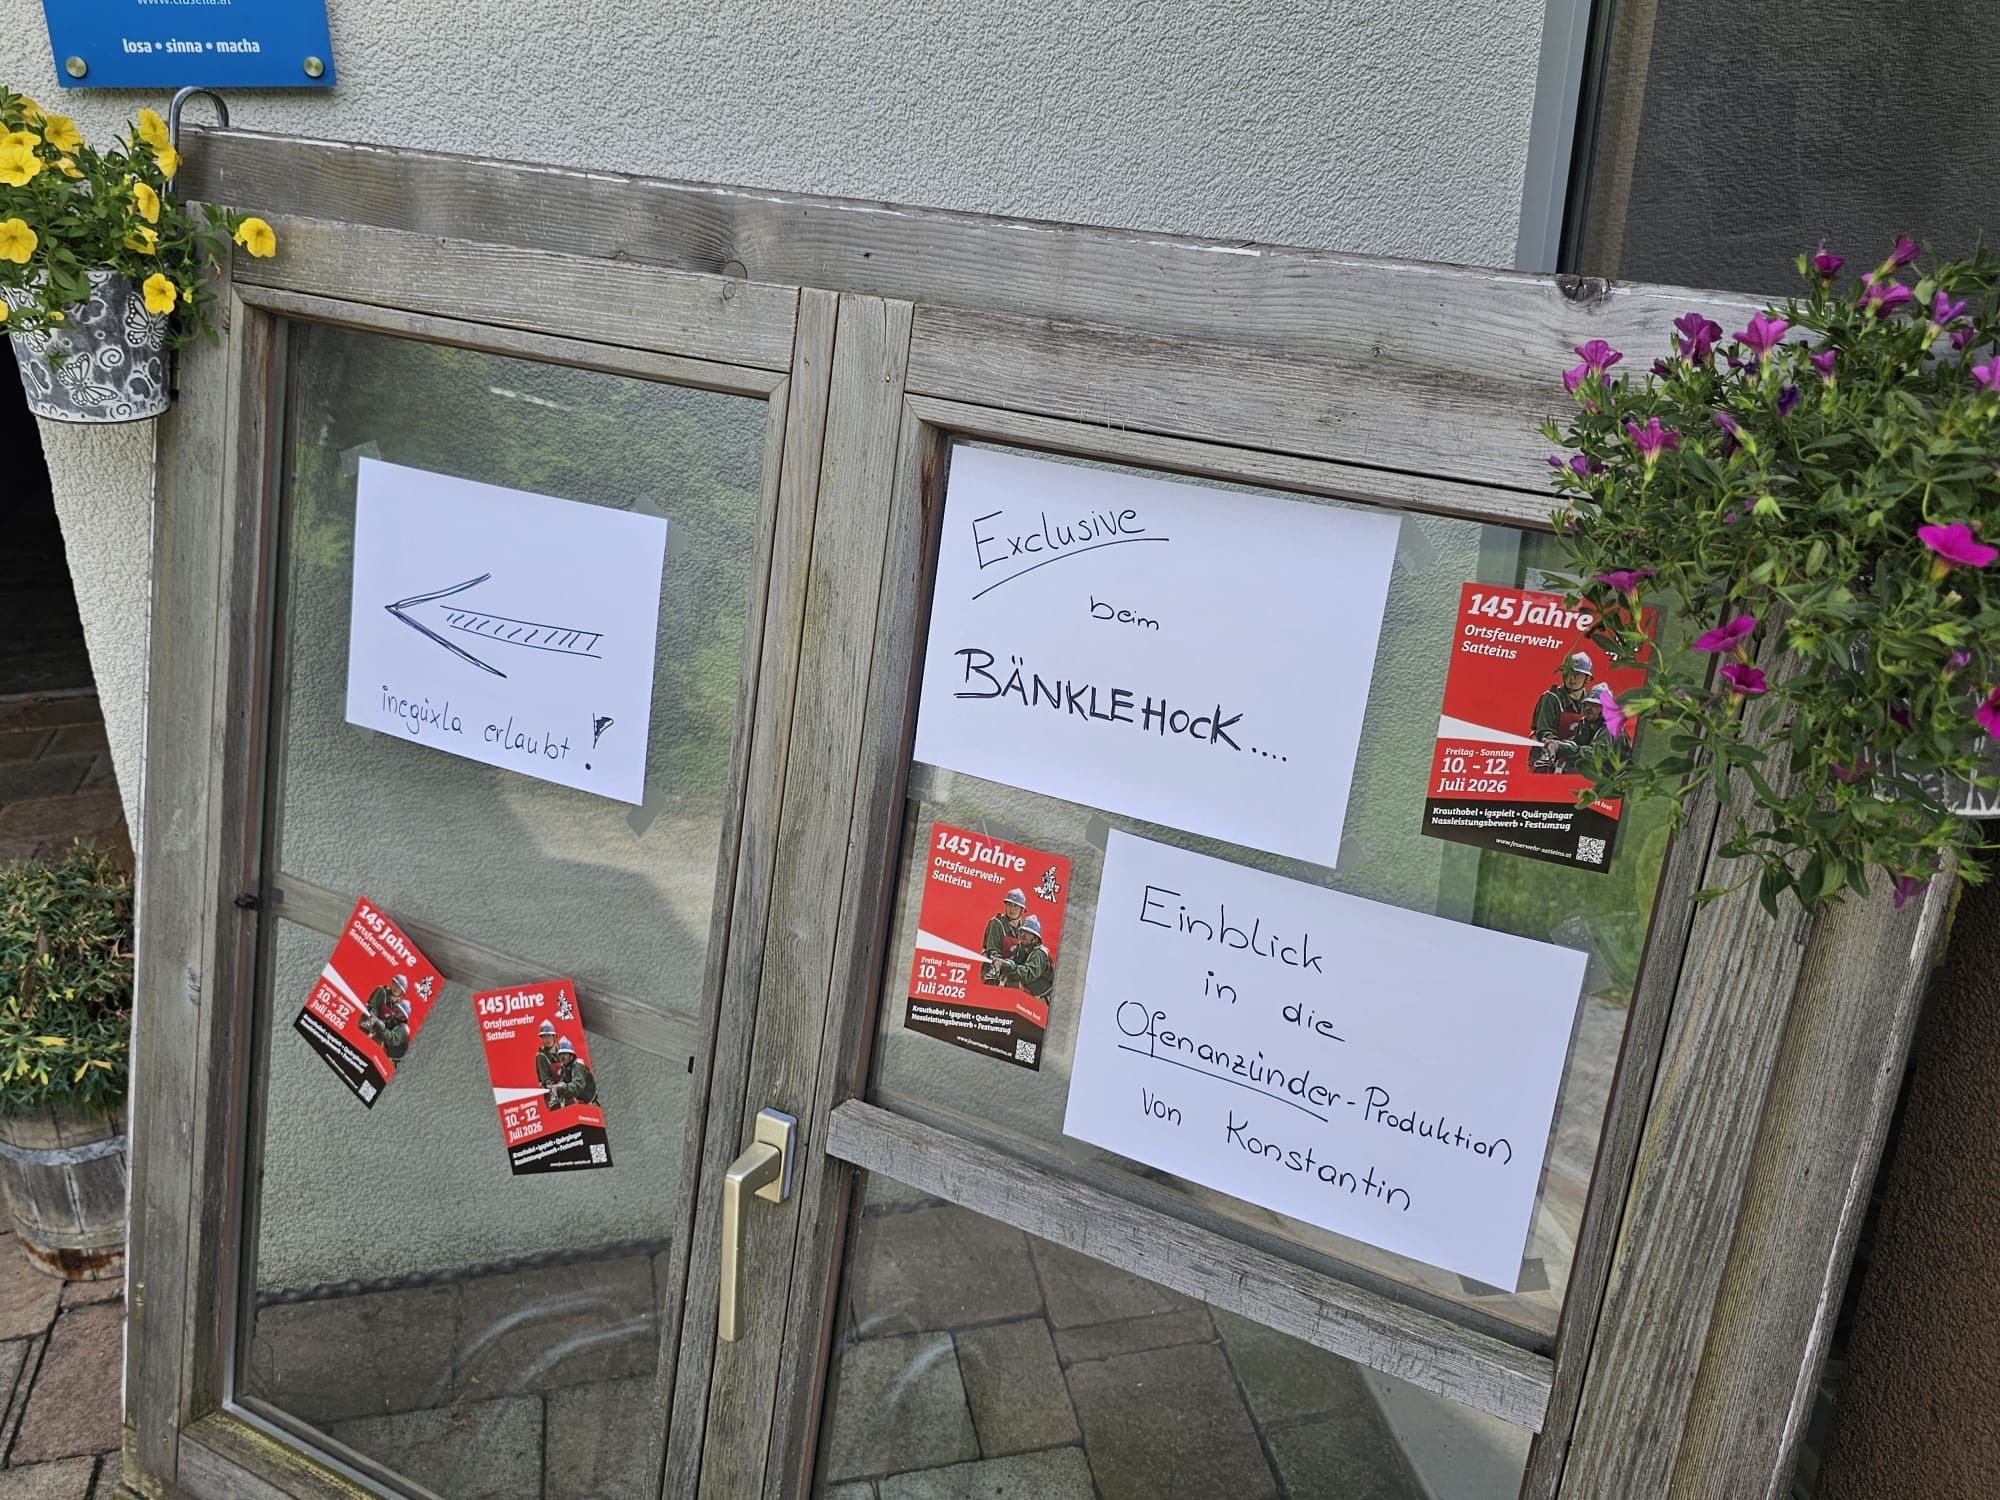 losa • sinna • macha
inegüxla erlaubt!
Exclusive
beim
BÄNKLEHOCK....
Einblick
in die
Ofenanzünder-Produktion
von Konstantin
145 Jahre
Ortsfeuerwehr
Satteins
Freitag - Sonntag
10. - 12.
Juli 2026
Krauthobel • igspielt • Quärgängar
Nassleistungsbewerb • Festumzug
www.feuerwehr-satteins.at
145 Jahre
Ortsfeuerwehr
Satteins
Freitag - Sonntag
10. - 12.
Juli 2026
Krauthobel • igspielt • Quärgängar
Nassleistungsbewerb • Festumzug
www.feuerwehr-satteins.at
145 Jahre
Ortsfeuerwehr
Satteins
Freitag - Sonntag
10. - 12.
Juli 2026
Krauthobel • igspielt • Quärgängar
Nassleistungsbewerb • Festumzug
145 Jahre
Ortsfeuerwehr
Satteins
Freitag - Sonntag
10. - 12.
Juli 2026
Krauthobel • igspielt • Quärgängar
Nassleistungsbewerb • Festumzug
www.feuerwehr-satteins.at